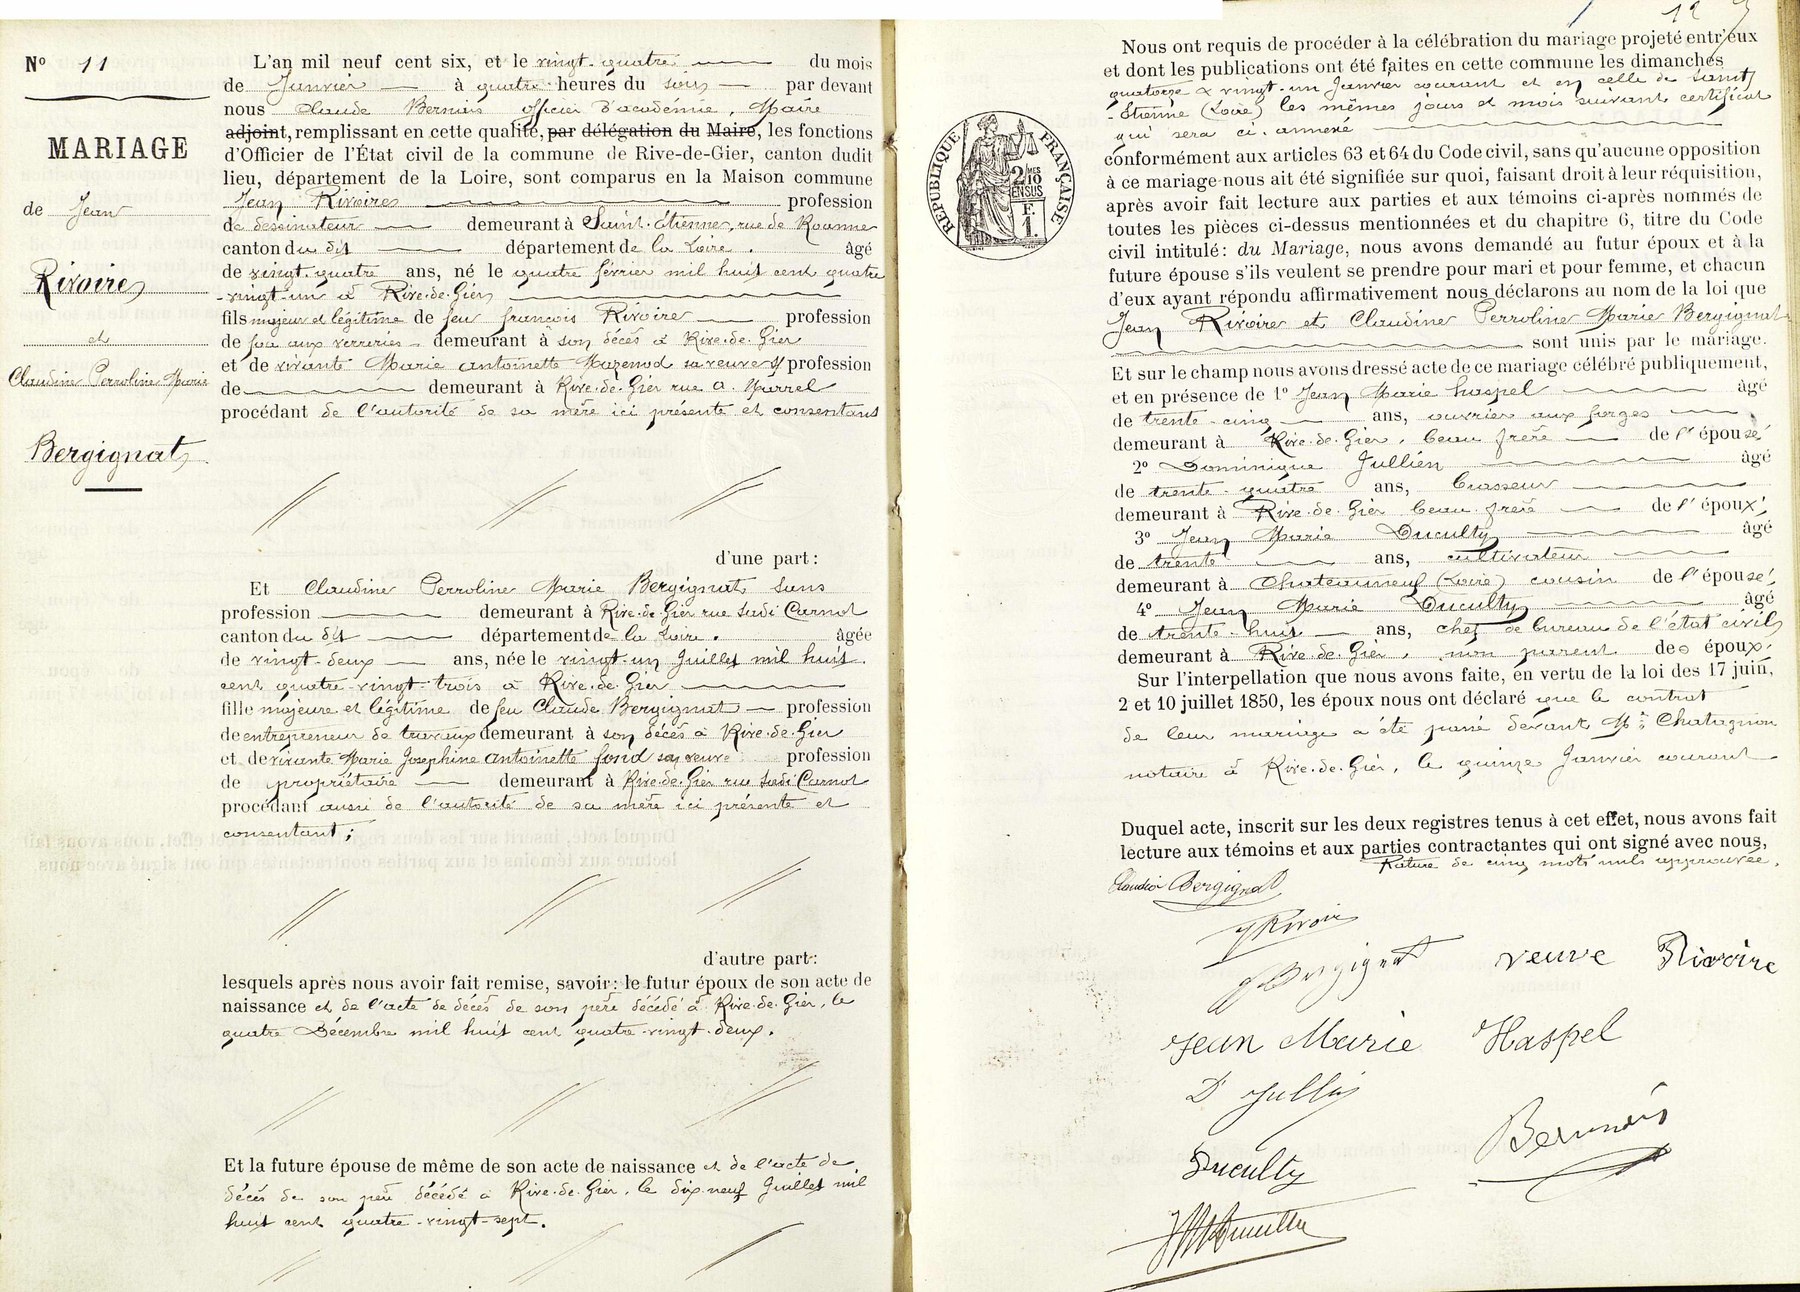 N° 11
MARIAGE
de Jean
Rivoire
et
Claudine Perroline Marie
Bergignat
L'an mil neuf cent six, et le vingt-quatre du mois
de Janvier à quatre heures du soir par devant
nous Claude Bernais officier d'académie, Maire
adjoint, remplissant en cette qualité, par délégation du Maire, les fonctions
d'Officier de l'État civil de la commune de Rive-de-Gier, canton dudit
lieu, département de la Loire, sont comparus en la Maison commune
Jean Rivoire profession
de dessinateur demeurant à Saint-Etienne, rue de Roanne
canton du dit département de la Loire. âgé
de vingt-quatre ans, né le quatre février mil huit cent quatre
-vingt-un à Rive-de-Gier
fils majeur et légitime de feu françois Rivoire profession
de demeurant à son décès à Rive-de-Gier
et de vivante Marie antoinette Mazenod sa veuve profession
de demeurant à Rive-de-Gier rue a. Marrel
procédant de l'autorité de sa mère ici présente et consentant
d'une part:
Et Claudine Perroline Marie Bergignat sans
profession demeurant à Rive-de-Gier rue Sadi Carnot
canton du dit département de la Loire. âgée
de vingt-deux ans, née le vingt-un Juillet mil huit
cent quatre-vingt-trois à Rive-de-Gier
fille majeure et légitime de feu Claude Bergignat profession
de entrepreneur de travaux demeurant à son décès à Rive-de-Gier
et de vivante Marie Josephine antoinette fond sa veuve profession
de propriétaire demeurant à Rive-de-Gier rue Sadi Carnot
procédant aussi de l'autorité de sa mère ici présente et
consentant;
d'autre part:
lesquels après nous avoir fait remise, savoir: le futur époux de son acte de
naissance et de l'acte de décès de son père décédé à Rive-de-Gier, le
quatre Décembre mil huit cent quatre-vingt-deux.
Et la future épouse de même de son acte de naissance et de l'acte de
décès de son père décédé à Rive-de-Gier, le dix-neuf Juillet mil
huit cent quatre-vingt-sept.
12
Nous ont requis de procéder à la célébration du mariage projeté entr'eux
et dont les publications ont été faites en cette commune les dimanches
quatorze & vingt-un Janvier courant et en celle de Saint
-Etienne (Loire) les mêmes jours et mois suivant certificat
qui sera ci-annexé
RÉPUBLIQUE FRANÇAISE
2/10mes
EN SUS
F.
1.
conformément aux articles 63 et 64 du Code civil, sans qu'aucune opposition
à ce mariage nous ait été signifiée sur quoi, faisant droit à leur réquisition,
après avoir fait lecture aux parties et aux témoins ci-après nommés de
toutes les pièces ci-dessus mentionnées et du chapitre 6, titre du Code
civil intitulé: du Mariage, nous avons demandé au futur époux et à la
future épouse s'ils veulent se prendre pour mari et pour femme, et chacun
d'eux ayant répondu affirmativement nous déclarons au nom de la loi que
Jean Rivoire et Claudine Perroline Marie Bergignat
sont unis par le mariage.
Et sur le champ nous avons dressé acte de ce mariage célébré publiquement,
et en présence de 1° Jean Marie haspel âgé
de trente-cinq ans, ouvrier aux forges
demeurant à Rive-de-Gier, beau frère de l'épousé
2° Dominique Jullien âgé
de trente-quatre ans, brasseur
demeurant à Rive-de-Gier beau-frère de l'époux;
3° Jean Marie Duculty âgé
de trente ans, cultivateur
demeurant à Chateauneuf (Loire) cousin de l'épouse;
4° Jean Marie Duculty âgé
de trente-huit ans, chef de bureau de l'état civil
demeurant à Rive-de-Gier, non parent des époux.
Sur l'interpellation que nous avons faite, en vertu de la loi des 17 juin,
2 et 10 juillet 1850, les époux nous ont déclaré que le contrat
de leur mariage a été passé devant Me Chatagnon
notaire à Rive-de-Gier, le quinze Janvier courant
Duquel acte, inscrit sur les deux registres tenus à cet effet, nous avons fait
lecture aux témoins et aux parties contractantes qui ont signé avec nous,
Rature de cinq mots nuls approuvée.
Claudia Bergignat
J Rivoire
Bergignat veuve Rivoire
Jean Marie Haspel
D Jullien
Bernais
Duculty